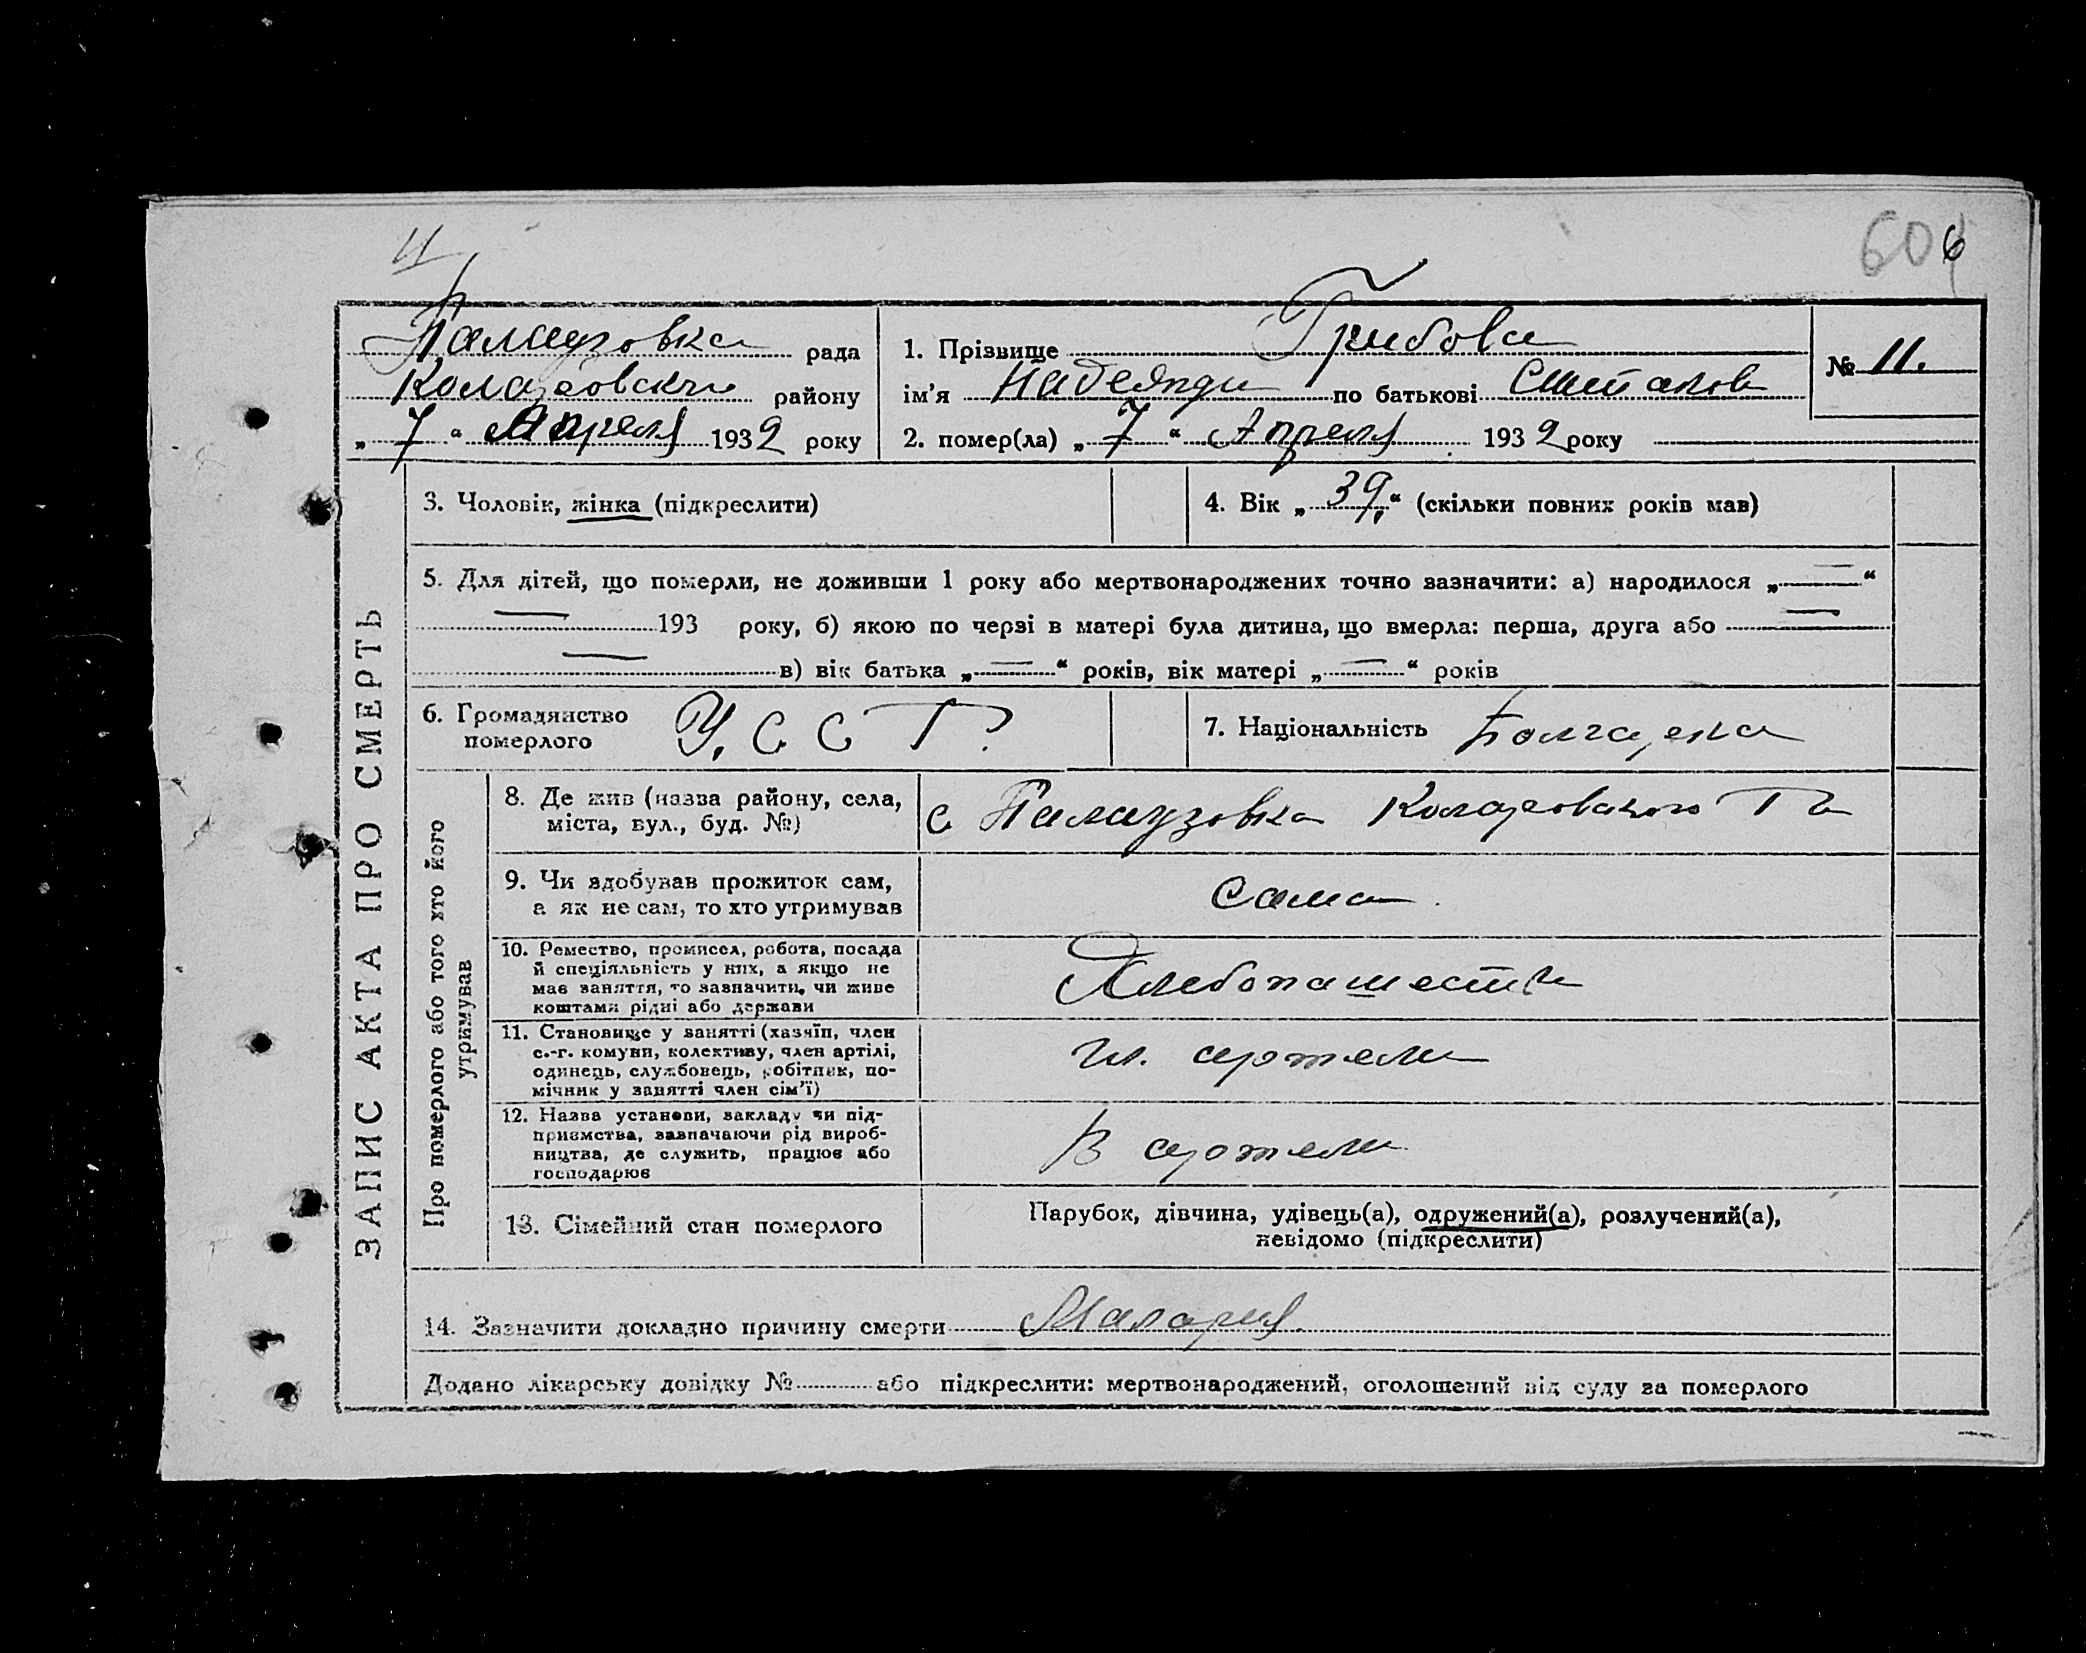 606
Палаузовка рада
Коларовский району
„ 7 “ Апреля 1932 року
1. Прізвище Грибова
№ 11.
ім’я Надежди по батькові
2. помер(ла) „ 7 “ Апреля 1932 року
ЗАПИС АКТА ПРО СМЕРТЬ
3. Чоловік, жінка (підкреслити)
4. Вік „ 39 “ (скільки повних років мав)
5. Для дітей, що померли, не доживши 1 року або мертвонароджених точно зазначити: а) народилося „ — “
— 193 року, б) якою по черзі в матері була дитина, що вмерла: перша, друга або —
— в) вік батька „ — “ років, вік матері „ — “ років
6. Громадянство
померлого
У. С С Р.
7. Національність Болгарка
Про померлого або того хто його
утримував
8. Де жив (назва району, села,
міста, вул., буд. №)
с Палаузовка Коларовского Р на
9. Чи здобував прожиток сам,
а як не сам, то хто утримував
Сама
10. Ремество, промисел, робота, посада
й спеціяльність у них, а якщо не
має заняття, то зазначити, чи живе
коштами рідні або держави
Хлебопашество
11. Становище у занятті (хазяїн, член
с.-г. комуни, колективу, член артілі,
одинець, службовець, робітник, по-
мічник у занятті член сім’ї)
чл. артели
12. Назва установи, закладу чи під-
приємства, зазначаючи рід вироб-
ництва, де служить, працює або
господарює
В артели
13. Сімейний стан померлого
Парубок, дівчина, удівець(а), одружений(а), розлучений(а),
невідомо (підкреслити)
14. Зазначити докладно причину смерти Малария
Додано лікарську довідку № або підкреслити: мертвонароджений, оголошений від суду за померлого